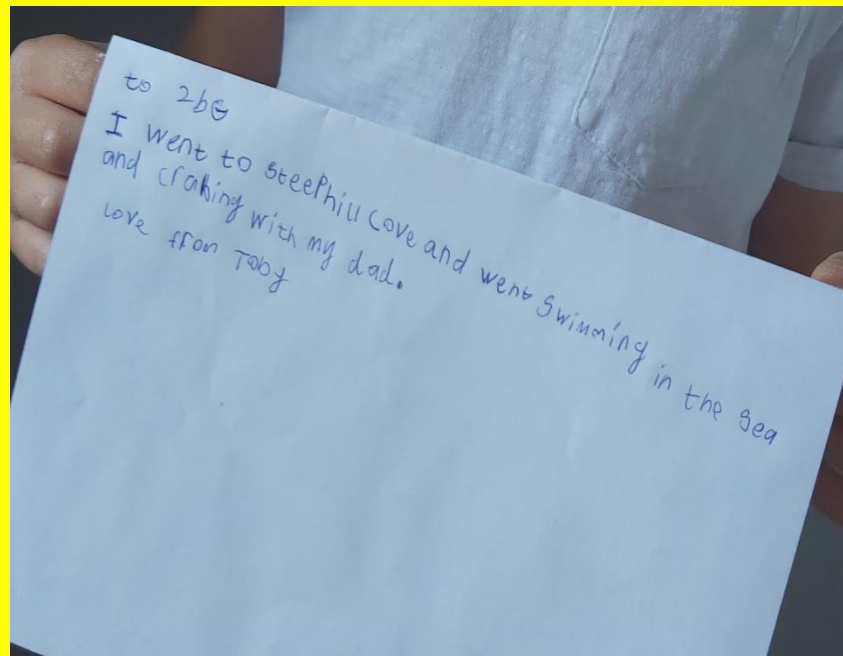 to 2bG
I went to SteePhill Cove and went Swimming in the Sea
and crabing with my dad.
Love from Toby